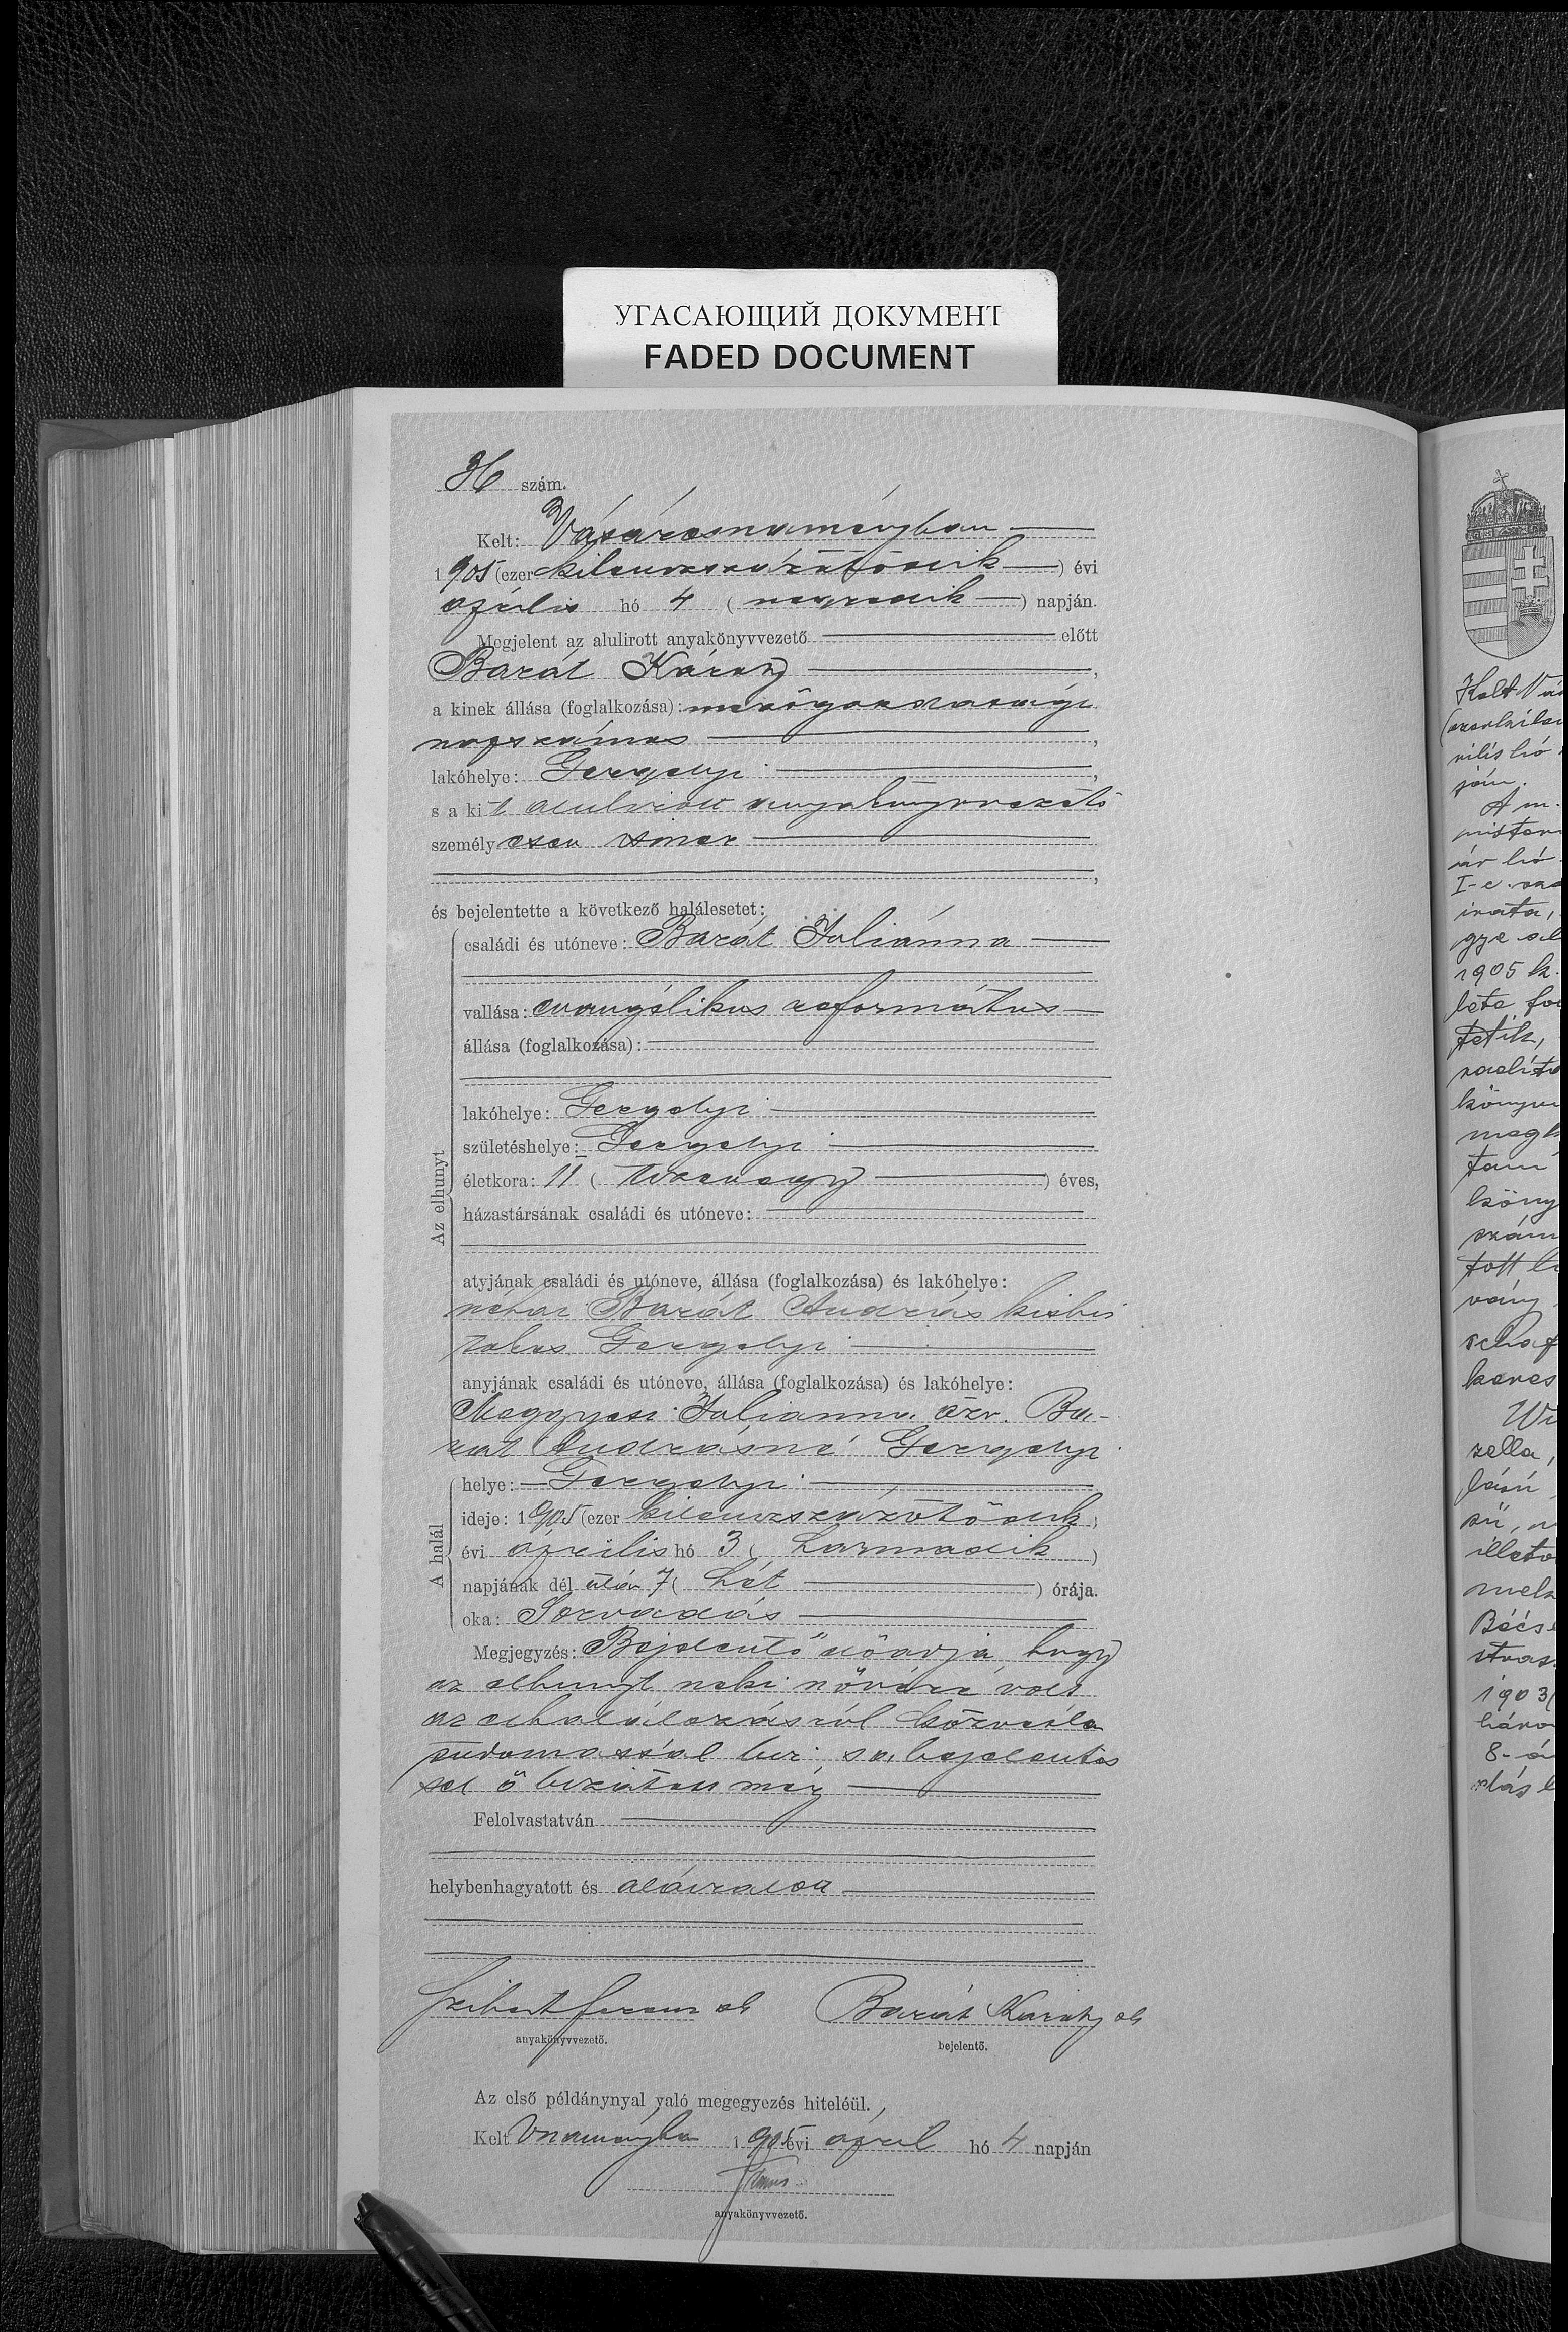 УГАСАЮЩИЙ ДОКУМЕНТ
FADED DOCUMENT
36 szám.
Kelt: Vásárosnaményban
1905 (ezer kilenczszázötödik) évi
április hó 4 (negyedik) napján.
Megjelent az alulirott anyakönyvvezető előtt
Barát Károly,
a kinek állása (foglalkozása): mezőgazdasági
napszámos,
lakóhelye: Gergelyi,
s a kit alulirott anyakönyvvezető
személyesen ismer
,
és bejelentette a következő halálesetet:
Az elhunyt
családi és utóneve: Barát Juliánna
vallása: evangélikus református
állása (foglalkozása):
lakóhelye: Gergelyi
születéshelye: Gergelyi
életkora: 11 (tizenegy) éves,
házastársának családi és utóneve:
atyjának családi és utóneve, állása (foglalkozása) és lakóhelye:
néhai Barát András kisbir
tokos Gergelyi
anyjának családi és utóneve, állása (foglalkozása) és lakóhelye:
Meggyesi Julianna özv. Ba-
rát Andrásné Gergelyi
A halál
helye: Gergelyi
ideje: 1905 (ezer kilenczszázötödik)
évi április hó 3 (harmadik)
napjának dél után 7 (hét) órája.
oka: Sorvadás
Megjegyzés: Bejelentő előadja, hogy
az elhunyt neki nővére volt
az elhalálozásról közvetlen
tudomással bir s a bejelentés
sel ő bizatott meg
Felolvastatván
helybenhagyatott és aláiratott
Ferencz sk Barát Károly sk
anyakönyvvezető. bejelentő.
Az első példánynyal való megegyezés hiteléül.
Kelt Vnaményba 1905 évi ápril hó 4 napján
anyakönyvvezető.
Kelt Vá
rilis hó
ján.
A m.
minister
ár hó
irata,
1905 k.
tetik,
köny
szám
tott
vány
keres
zella,
Bécs
1903(
8-